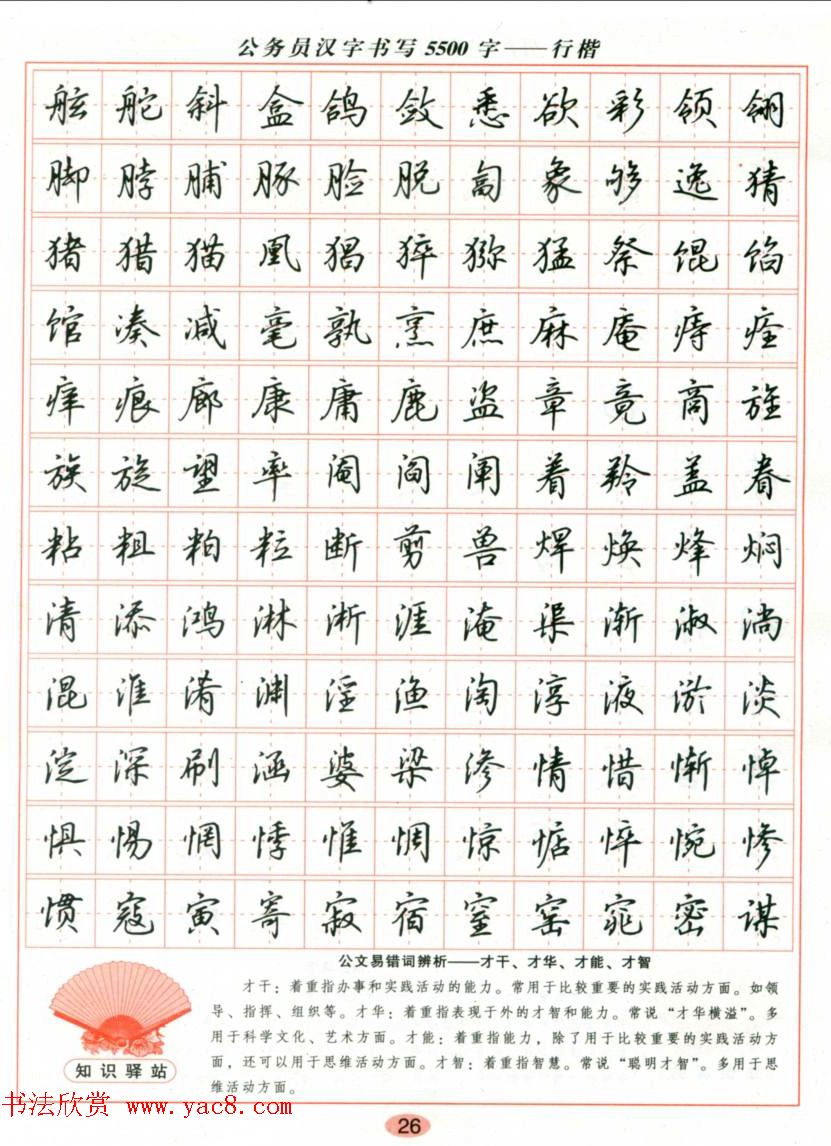 公务员汉字书写5500字——行楷
舷 舵 斜 盒 鸽 敛 悉 欲 彩 领 翎
脚 脖 脯 豚 脸 脱 匐 象 够 逸 猜
猪 猎 猫 凰 猖 猝 猕 猛 祭 馄 馅
馆 凑 减 毫 孰 烹 庶 麻 庵 痔 痊
痒 痕 廊 康 庸 鹿 盗 章 竟 商 旌
族 旋 望 率 阉 阎 阐 着 羚 盖 眷
粘 粗 粕 粒 断 剪 兽 焊 焕 烽 焖
清 添 鸿 淋 淅 涯 淹 渠 渐 淑 淌
混 淮 淆 渊 淫 渔 淘 淳 液 淤 淡
淀 深 刷 涵 婆 梁 渗 情 惜 惭 悼
惧 惕 惘 悸 惟 惆 惊 惦 悴 惋 惨
惯 寇 寅 寄 寂 宿 窒 窑 窕 密 谋
公文易错词辨析——才干、才华、才能、才智
才干：着重指办事和实践活动的能力。常用于比较重要的实践活动方面。如领
导、指挥、组织等。才华：着重指表现于外的才智和能力。常说“才华横溢”。多
用于科学文化、艺术方面。才能：着重指能力，除了用于比较重要的实践活动方
面，还可以用于思维活动方面。才智：着重指智慧。常说“聪明才智”。多用于思
维活动方面。
知识驿站
书法欣赏 www.yac8.com
26